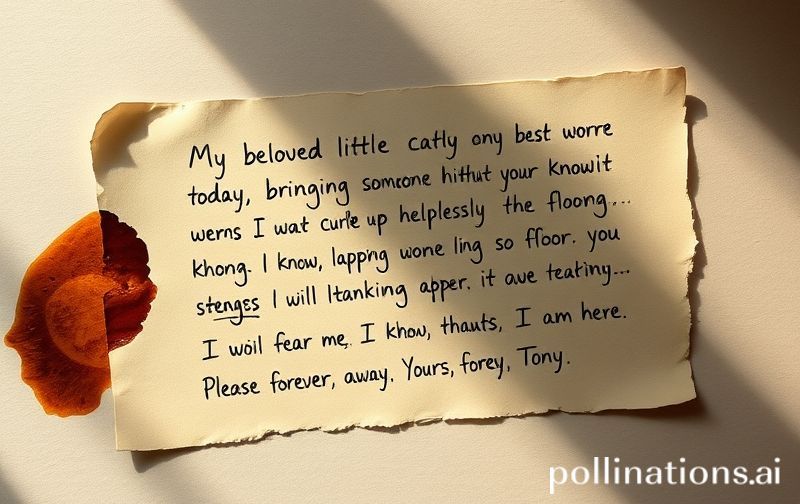 My beloved little catly ony best worre
today, bringing someone hithut your Knowit
werns I wat curle up helplessly the floong...
khong. I know, lapping wone ling so ffoor. you
stenges I will Itanking apper. it ave teatiny...
I woil fear me. I khow, thauts, I am here.
Please forever, away. Yours, forey, Tony.
pollinations.ai